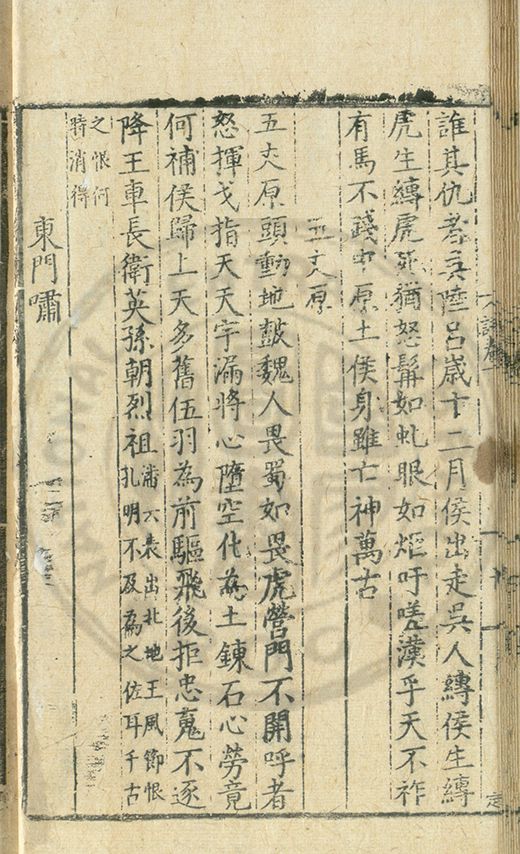 誰其仇者吳陸呂歲十二月侯出走吳人縛侯生縛
虎生縛虎死猶怒髯如虬眼如炬吁嗟漢乎天不祚
有馬不踐中原土侯身雖亡神萬古
五丈原
五丈原頭動地鼓魏人畏蜀如畏虎營門不開呼者
怒揮戈指天天宇漏將心墮空化為土鍊石心勞竟
何補侯歸上天多舊伍羽為前驅飛後拒忠䰟不逐
降王車長衛英孫朝烈祖潘六表出北地王風節恨
孔明不及為之佐耳千古
之恨何
時消得
東門嘯